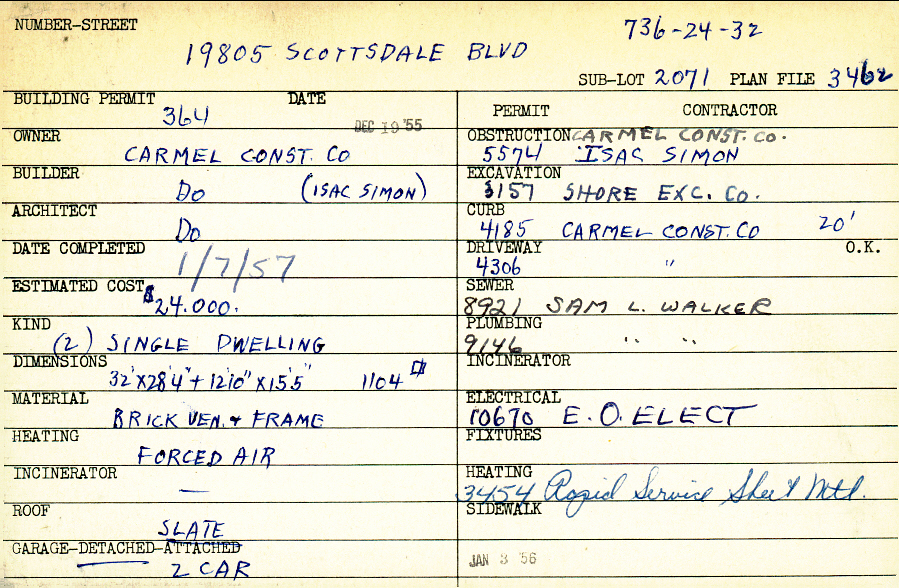 NUMBER-STREET
736-24-32
19805 SCOTTSDALE BLVD
SUB-LOT 2071 PLAN FILE 3462
BUILDING PERMIT DATE
364
DEC 19 '55
OWNER
CARMEL CONST. CO
BUILDER
DO (ISAC SIMON)
ARCHITECT
DO
DATE COMPLETED
1/7/57
ESTIMATED COST
$24.000.
KIND
(2) SINGLE DWELLING
DIMENSIONS
32'X28'4" + 12'10" X 15'5" 1104
MATERIAL
BRICK VEN. + FRAME
HEATING
FORCED AIR
INCINERATOR
—
ROOF
SLATE
GARAGE-DETACHED-ATTACHED
2 CAR
PERMIT CONTRACTOR
OBSTRUCTION CARMEL CONST. CO.
5574 ISAC SIMON
EXCAVATION
3157 SHORE EXC. CO.
CURB
4185 CARMEL CONST. CO 20'
DRIVEWAY O.K.
4306 "
SEWER
8921 SAM L. WALKER
PLUMBING
9146 " "
INCINERATOR
ELECTRICAL
10670 E.O. ELECT
FIXTURES
HEATING
3454 Rapid Service Sheet Mtl.
SIDEWALK
JAN 3 '56